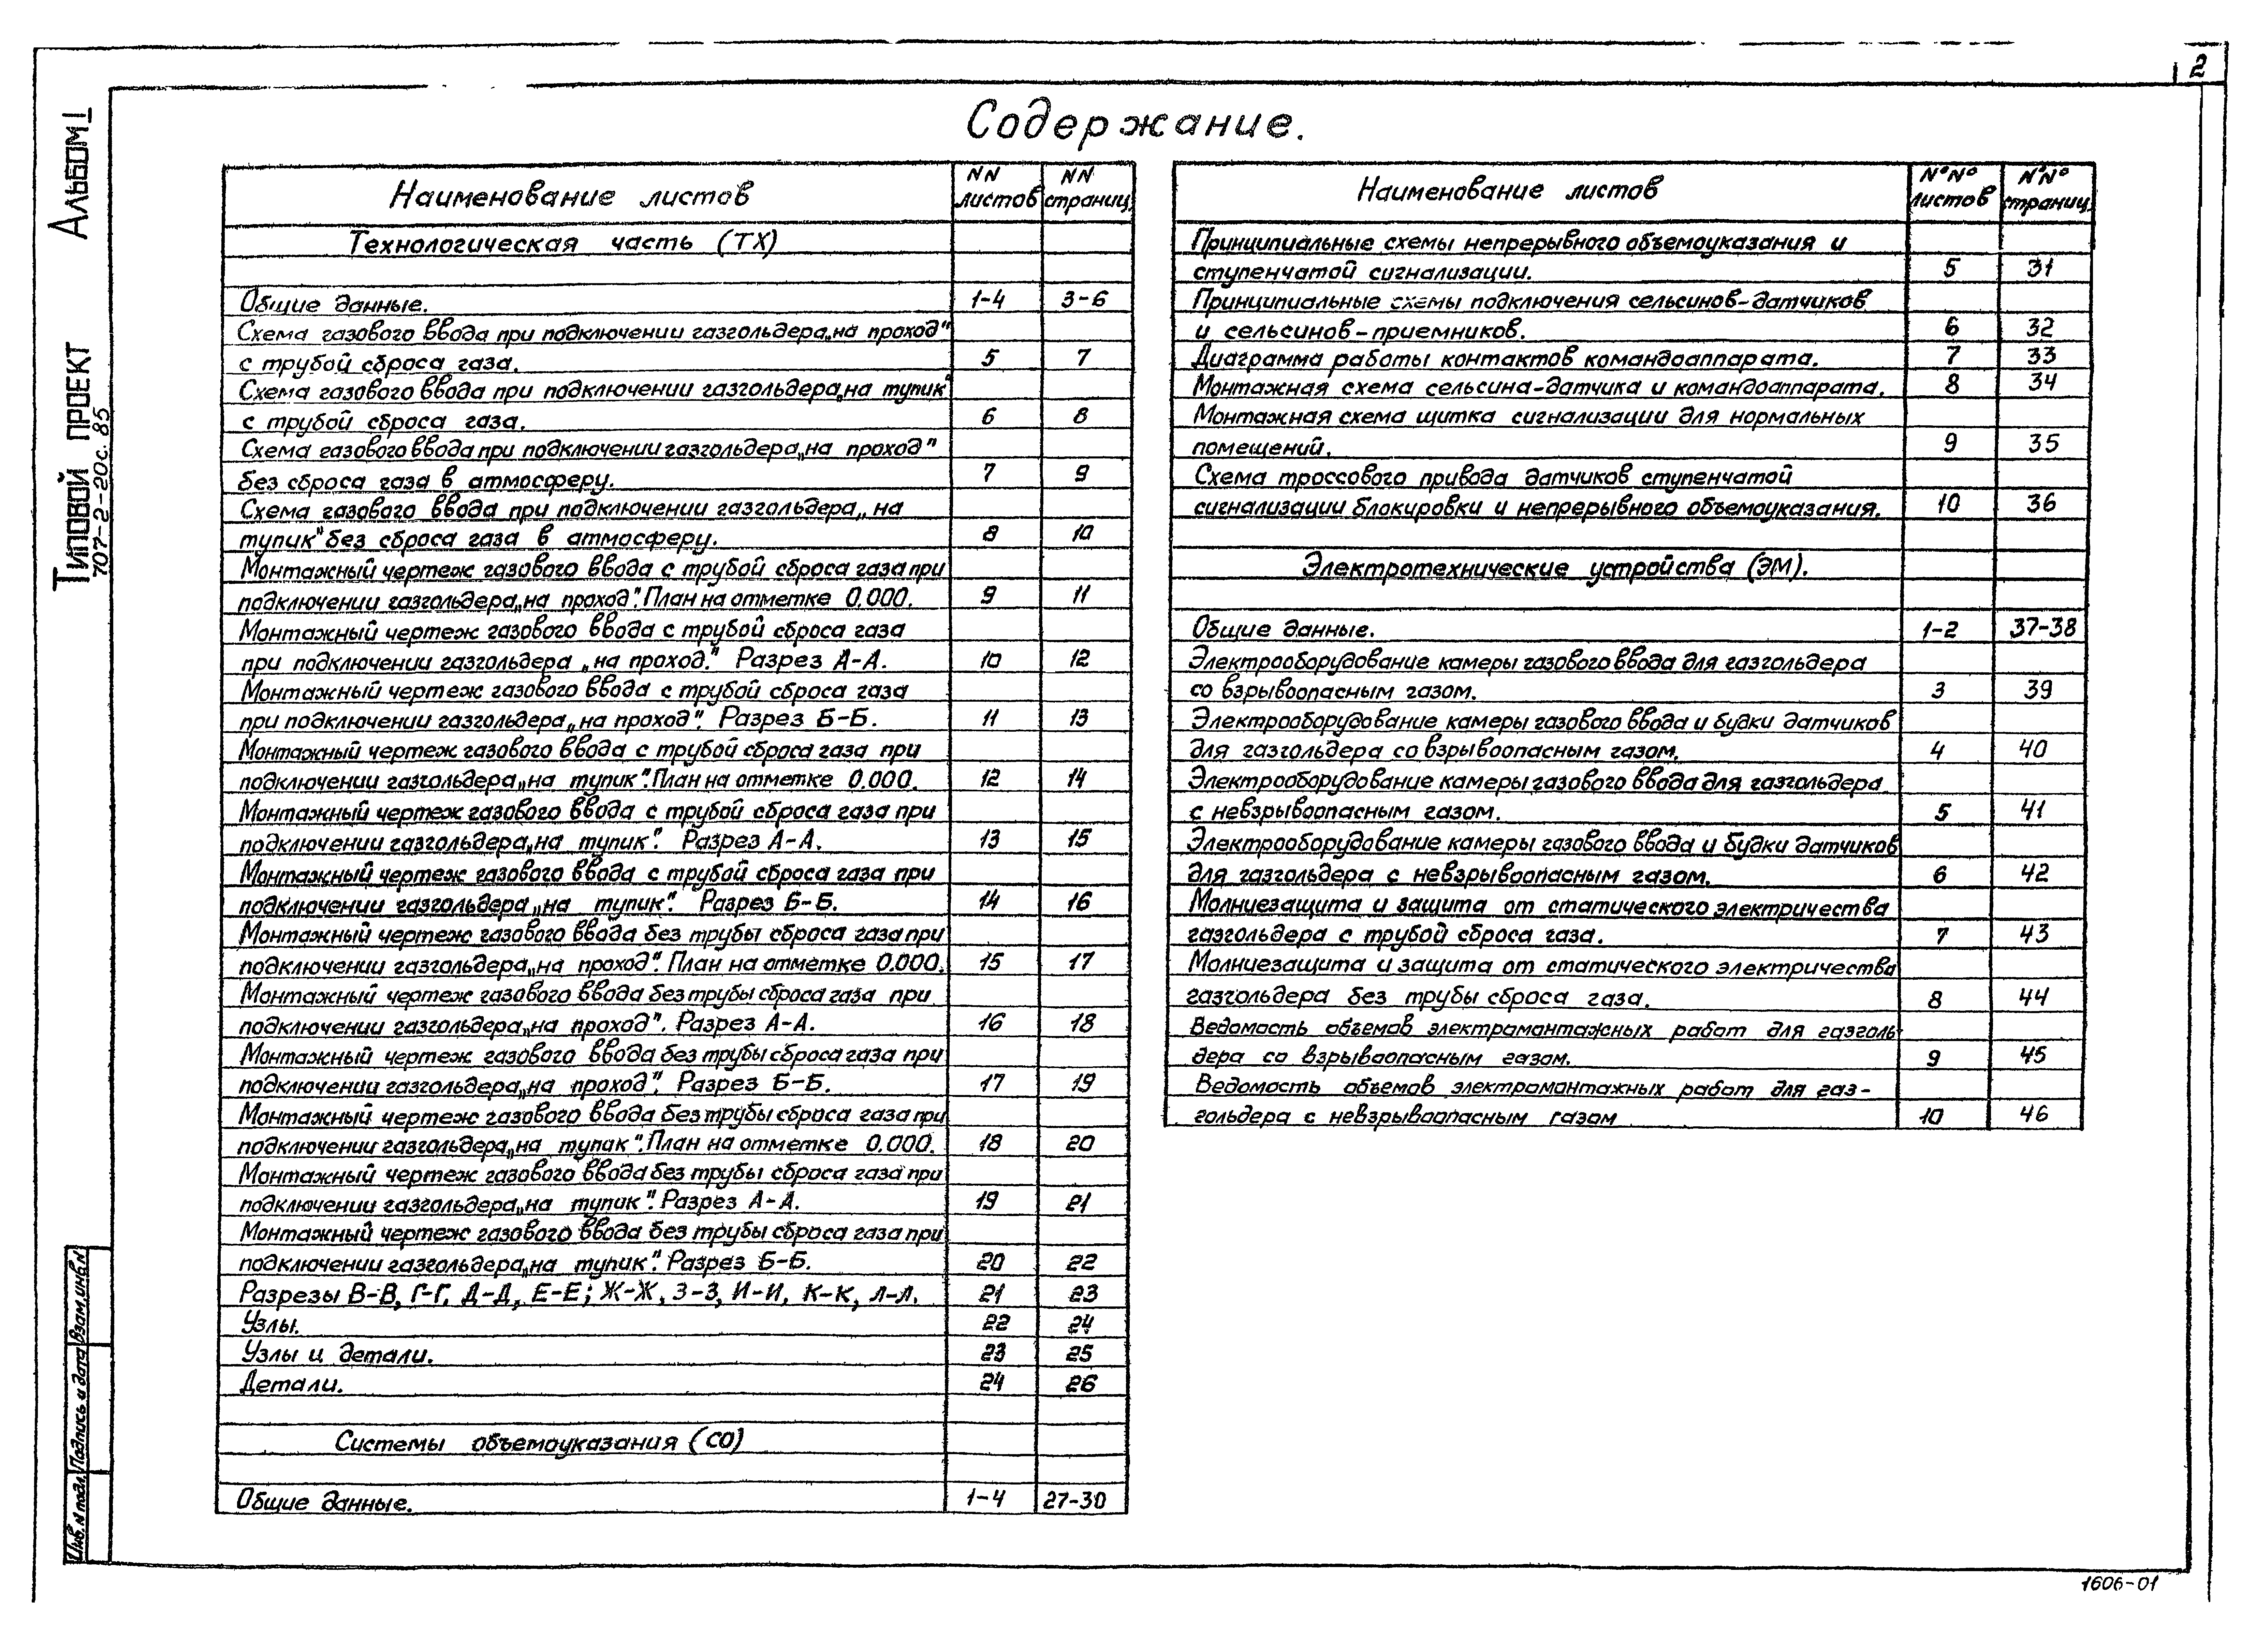 2
Альбом I
Типовой проект
707-2-20с.85
Содержание.
Наименование листов
NN листов
NN страниц
Технологическая часть (ТХ)
Общие данные. 1-4 3-6
Схема газового ввода при подключении газгольдера „на проход"
с трубой сброса газа. 5 7
Схема газового ввода при подключении газгольдера „на тупик"
с трубой сброса газа. 6 8
Схема газового ввода при подключении газгольдера „на проход"
без сброса газа в атмосферу. 7 9
Схема газового ввода при подключении газгольдера „на
тупик" без сброса газа в атмосферу. 8 10
Монтажный чертеж газового ввода с трубой сброса газа при
подключении газгольдера „на проход". План на отметке 0.000. 9 11
Монтажный чертеж газового ввода с трубой сброса газа
при подключении газгольдера „на проход." Разрез А-А. 10 12
Монтажный чертеж газового ввода с трубой сброса газа
при подключении газгольдера „на проход". Разрез Б-Б. 11 13
Монтажный чертеж газового ввода с трубой сброса газа при
подключении газгольдера „на тупик". План на отметке 0.000. 12 14
Монтажный чертеж газового ввода с трубой сброса газа при
подключении газгольдера „на тупик". Разрез А-А. 13 15
Монтажный чертеж газового ввода с трубой сброса газа при
подключении газгольдера „на тупик". Разрез Б-Б. 14 16
Монтажный чертеж газового ввода без трубы сброса газа при
подключении газгольдера „на проход". План на отметке 0.000. 15 17
Монтажный чертеж газового ввода без трубы сброса газа при
подключении газгольдера „на проход". Разрез А-А. 16 18
Монтажный чертеж газового ввода без трубы сброса газа при
подключении газгольдера „на проход". Разрез Б-Б. 17 19
Монтажный чертеж газового ввода без трубы сброса газа при
подключении газгольдера „на тупик". План на отметке 0.000. 18 20
Монтажный чертеж газового ввода без трубы сброса газа при
подключении газгольдера „на тупик". Разрез А-А. 19 21
Монтажный чертеж газового ввода без трубы сброса газа при
подключении газгольдера „на тупик". Разрез Б-Б. 20 22
Разрезы В-В, Г-Г, Д-Д, Е-Е; Ж-Ж, З-З, И-И, К-К, Л-Л. 21 23
Узлы. 22 24
Узлы и детали. 23 25
Детали. 24 26
Системы объемоуказания (СО)
Общие данные. 1-4 27-30
Наименование листов
N°N° листов
N°N° страниц
Принципиальные схемы непрерывного объемоуказания и
ступенчатой сигнализации. 5 31
Принципиальные схемы подключения сельсинов-датчиков
и сельсинов-приемников. 6 32
Диаграмма работы контактов командоаппарата. 7 33
Монтажная схема сельсина-датчика и командоаппарата. 8 34
Монтажная схема щитка сигнализации для нормальных
помещений. 9 35
Схема троссового привода датчиков ступенчатой
сигнализации блокировки и непрерывного объемоуказания. 10 36
Электротехнические устройства (ЭМ).
Общие данные. 1-2 37-38
Электрооборудование камеры газового ввода для газгольдера
со взрывоопасным газом. 3 39
Электрооборудование камеры газового ввода и будки датчиков
для газгольдера со взрывоопасным газом. 4 40
Электрооборудование камеры газового ввода для газгольдера
с невзрывоопасным газом. 5 41
Электрооборудование камеры газового ввода и будки датчиков
для газгольдера с невзрывоопасным газом. 6 42
Молниезащита и защита от статического электричества
газгольдера с трубой сброса газа. 7 43
Молниезащита и защита от статического электричества
газгольдера без трубы сброса газа. 8 44
Ведомость объемов электромонтажных работ для газголь
дера со взрывоопасным газом. 9 45
Ведомость объемов электромонтажных работ для газ-
гольдера с невзрывоопасным газом 10 46
Взам.инв.N
Подпись и дата
Инв.N подл.
1606-01